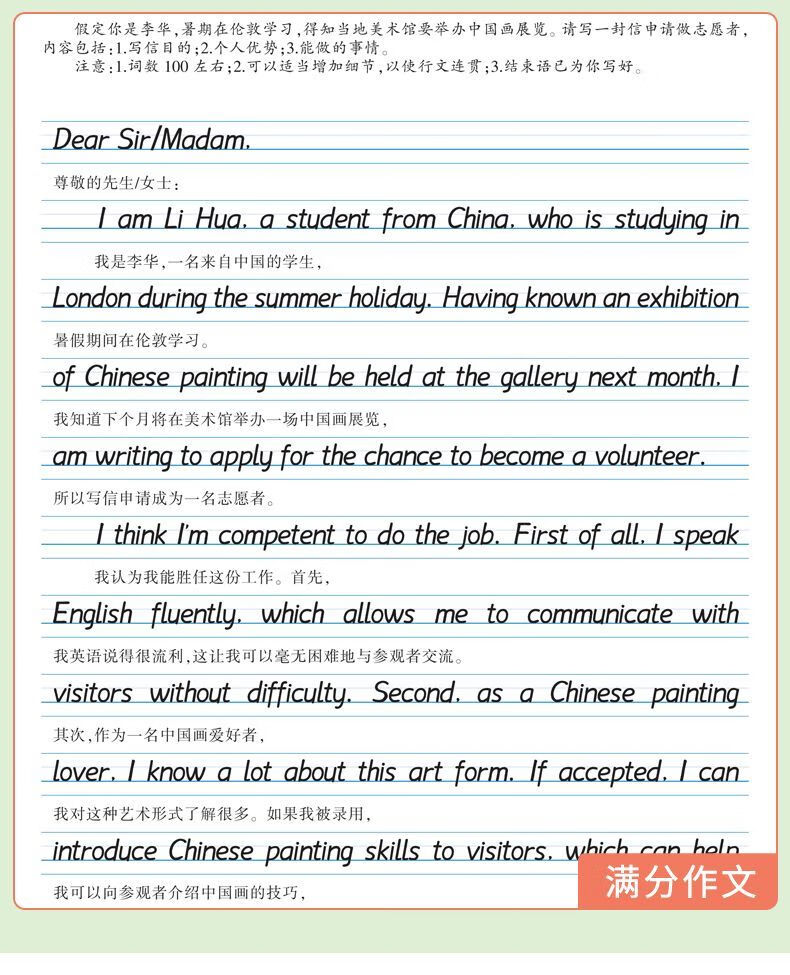 假定你是李华,暑期在伦敦学习,得知当地美术馆要举办中国画展览。请写一封信申请做志愿者,
内容包括:1.写信目的;2.个人优势;3.能做的事情。
注意:1.词数 100 左右;2.可以适当增加细节,以使行文连贯;3.结束语已为你写好。
Dear Sir/Madam,
尊敬的先生/女士:
I am Li Hua, a student from China, who is studying in
我是李华,一名来自中国的学生,
London during the summer holiday. Having known an exhibition
暑假期间在伦敦学习。
of Chinese painting will be held at the gallery next month, I
我知道下个月将在美术馆举办一场中国画展览,
am writing to apply for the chance to become a volunteer.
所以写信申请成为一名志愿者。
I think I'm competent to do the job. First of all, I speak
我认为我能胜任这份工作。首先,
English fluently, which allows me to communicate with
我英语说得很流利,这让我可以毫无困难地与参观者交流。
visitors without difficulty. Second, as a Chinese painting
其次,作为一名中国画爱好者,
lover, I know a lot about this art form. If accepted, I can
我对这种艺术形式了解很多。如果我被录用,
introduce Chinese painting skills to visitors, which can help
我可以向参观者介绍中国画的技巧,
满分作文